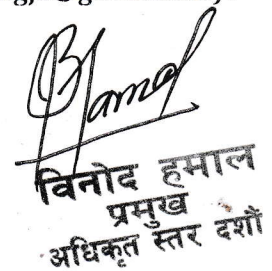 विनोद हमाल
प्रमुख
अधिकृत स्तर दशौं